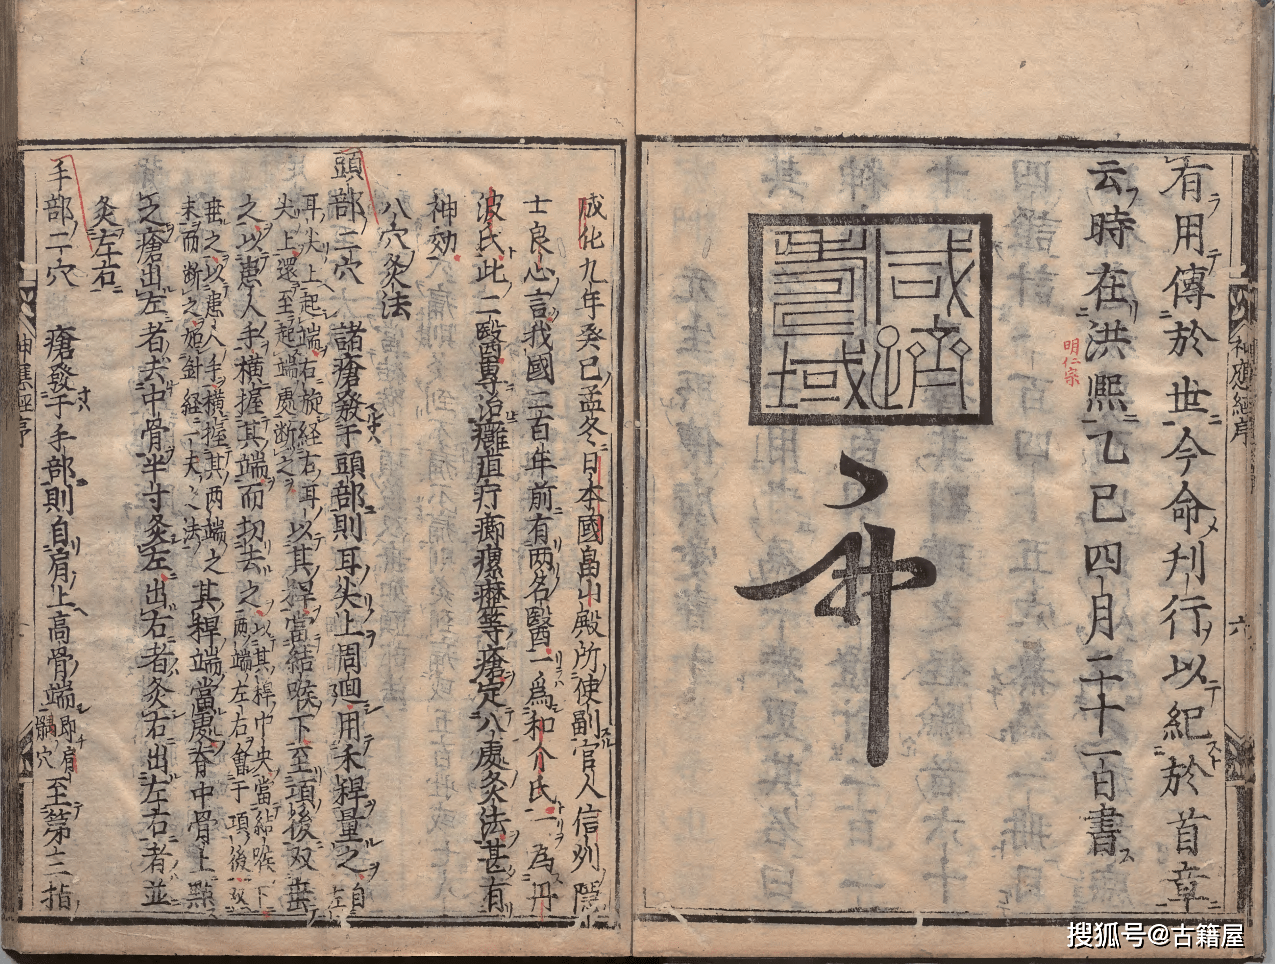 有用傳於世今命刋行以紀於首章
云時在洪熙乙巳四月二十一日書
明仁宗
咸躋壽域
神應經序
六
成化九年癸巳孟冬日本國畠山殿所使副官人信州隱
士良心言我國二百年前有两名醫一爲和介氏一為丹
波氏此二醫專治癰疽疔癤瘰癧等瘡定八處灸法甚有
神効
八穴灸法
頭部二穴 諸瘡發于頭部則耳尖上周廻用禾稈量之自左
耳尖上起端右旋経右耳
尖上還至起端處断之以其稈當結喉下至項後双垂
之以患人手横握其端而切去之以其稈中央當結喉下
两端左右會于項後双
垂之以患人手横握其两端之
末而断之神應経一夫之法其稈端當處脊中骨上點
之瘡出左者去中骨半寸灸左出右者灸右出左右者並
灸左右
手部二穴 瘡發于手部則自肩上高骨端即肩
髃穴至第三指
神應經序
搜狐号@古籍屋